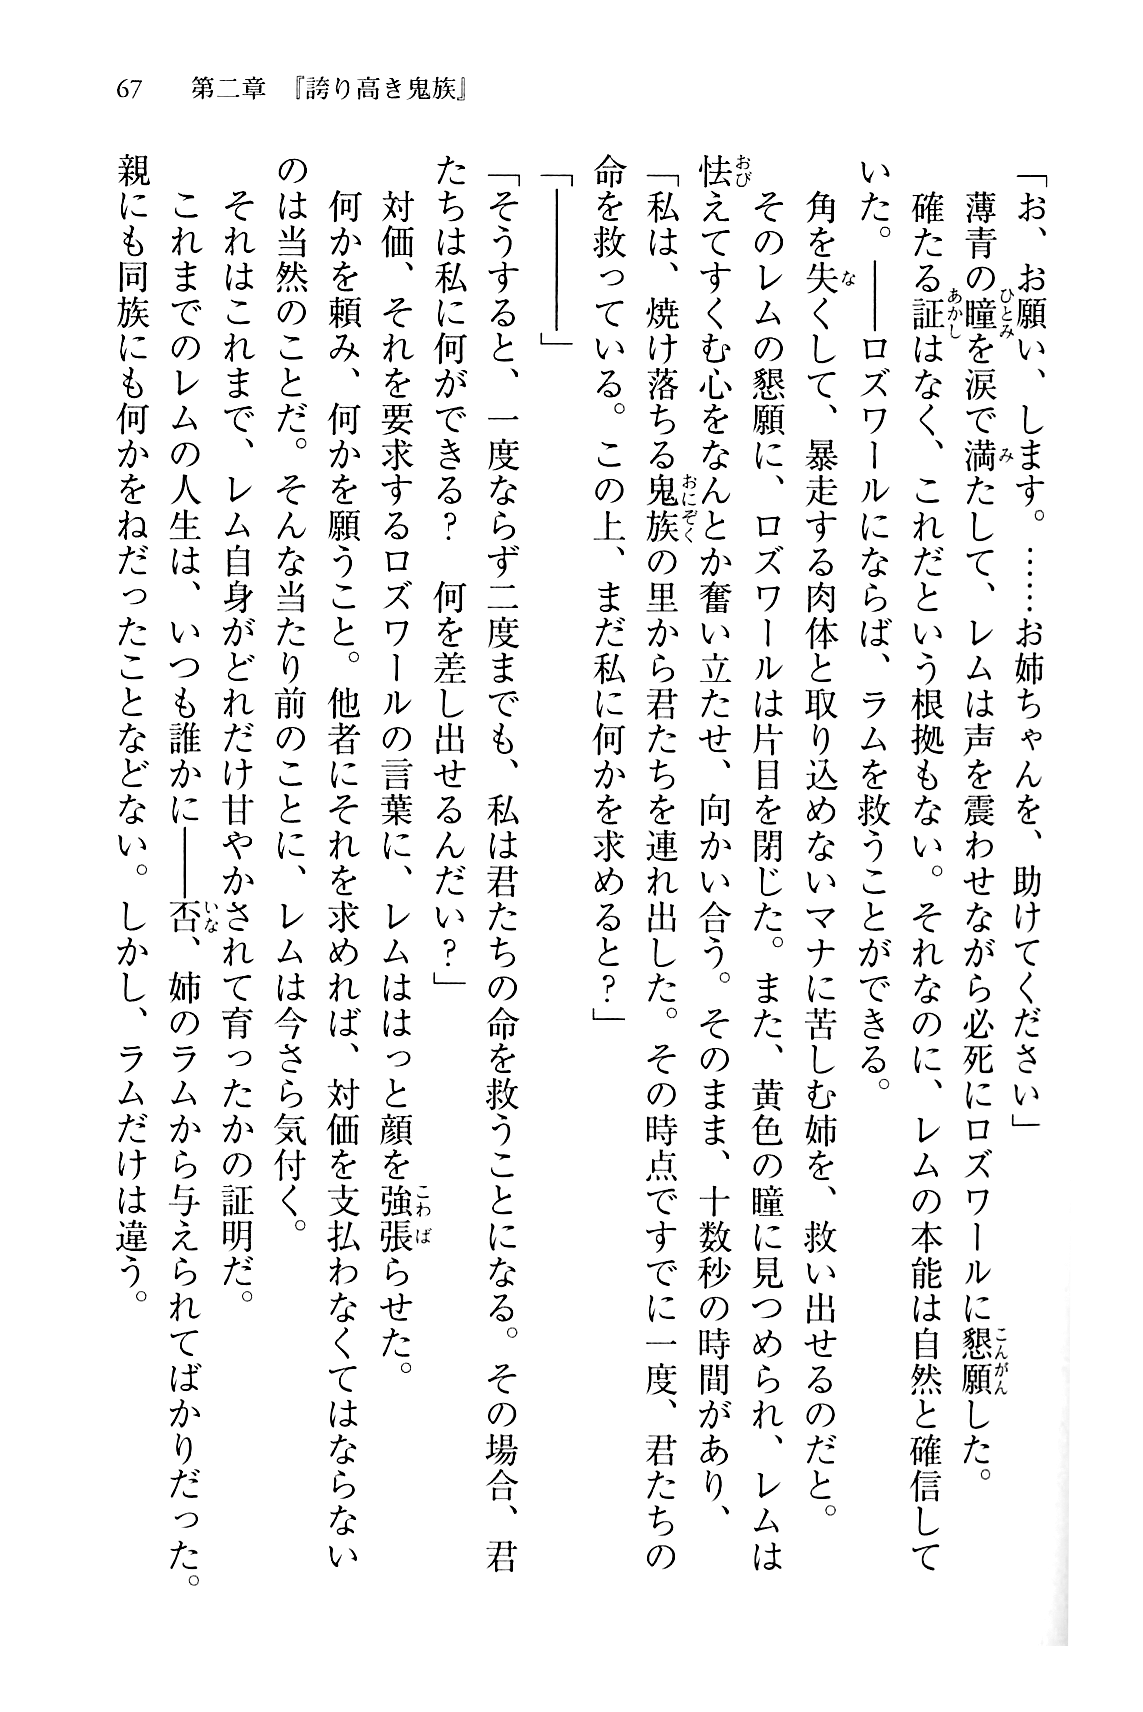 67　第二章　『誇り高き鬼族』
「お、お願い、します。……お姉ちゃんを、助けてください」
　薄青の瞳を涙で満たして、レムは声を震わせながら必死にロズワールに懇願した。
　確たる証はなく、これだという根拠もない。それなのに、レムの本能は自然と確信して
いた。――ロズワールにならば、ラムを救うことができる。
　角を失くして、暴走する肉体と取り込めないマナに苦しむ姉を、救い出せるのだと。
　そのレムの懇願に、ロズワールは片目を閉じた。また、黄色の瞳に見つめられ、レムは
怯えてすくむ心をなんとか奮い立たせ、向かい合う。そのまま、十数秒の時間があり、
「私は、焼け落ちる鬼族の里から君たちを連れ出した。その時点ですでに一度、君たちの
命を救っている。この上、まだ私に何かを求めると？」
「――――」
「そうすると、一度ならず二度までも、私は君たちの命を救うことになる。その場合、君
たちは私に何ができる？　何を差し出せるんだい？」
　対価、それを要求するロズワールの言葉に、レムははっと顔を強張らせた。
　何かを頼み、何かを願うこと。他者にそれを求めれば、対価を支払わなくてはならない
のは当然のことだ。そんな当たり前のことに、レムは今さら気付く。
　それはこれまで、レム自身がどれだけ甘やかされて育ったかの証明だ。
　これまでのレムの人生は、いつも誰かに――否、姉のラムから与えられてばかりだった。
親にも同族にも何かをねだったことなどない。しかし、ラムだけは違う。